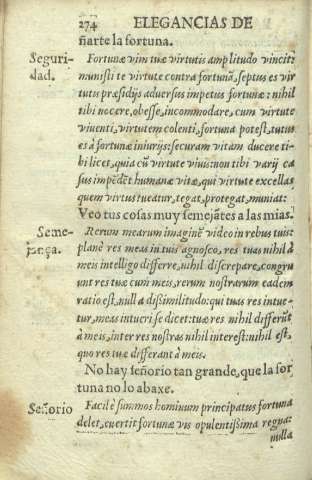 274 ELEGANCIAS DE
ñarte la fortuna.
Seguridad. Fortunæ vim tuæ virtutis amplitudo vincit:
munisti te virtute contra fortunã, septus es vir
tutis præsidijs adversus impetus fortunæ: nihil
tibi nocere, obesse, incommodare, cum virtute
viventi, virtutem colenti, fortuna potest, tutus
es à fortunæ iniurijs: securam vitam ducere ti-
bi licet, quia cũ virtute vivis: non tibi varij ca
sus impẽdẽt humanæ vitæ, qui virtute excellas
quem virtus tueatur, tegat, protegat, muniat:
Veo tus cosas muy semejãtes a las mias.
Semejança. Rerum mearum imaginẽ video in rebus tuis:
planè res meas in tuis agnosco, res tuas nihil à
meis intelligo differre, nihil discrepare, congru
unt res tuæ cum meis, rerum nostrarum eadem
ratio est, nulla dißimilitudo: qui tuas res intue-
tur, meas intueri se dicet: tuæ res nihil differũt
à meis, inter res nostras nihil interest: nihil est,
quo res tuæ differant à meis.
No hay señorio tan grande, que la for
tuna no lo abaxe.
Señorio Facilè summos hominum principatus fortuna
delet, evertit fortunæ vis opulentißima regna:
nulla